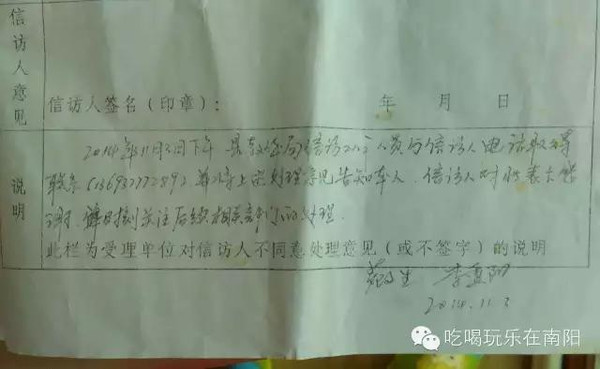 信访人意见
信访人签名（印章）：　　年　月　日
说明
2014年11月3日下午 县教体局信访办工作人员与信访人电话取得
联系（13693777289）并将上述处理意见告知本人，信访人对此表示感
谢，
关注后续相关部门的处理.
此栏为受理单位对信访人不同意处理意见（或不签字）的说明
2014.11.3
吃喝玩乐在南阳